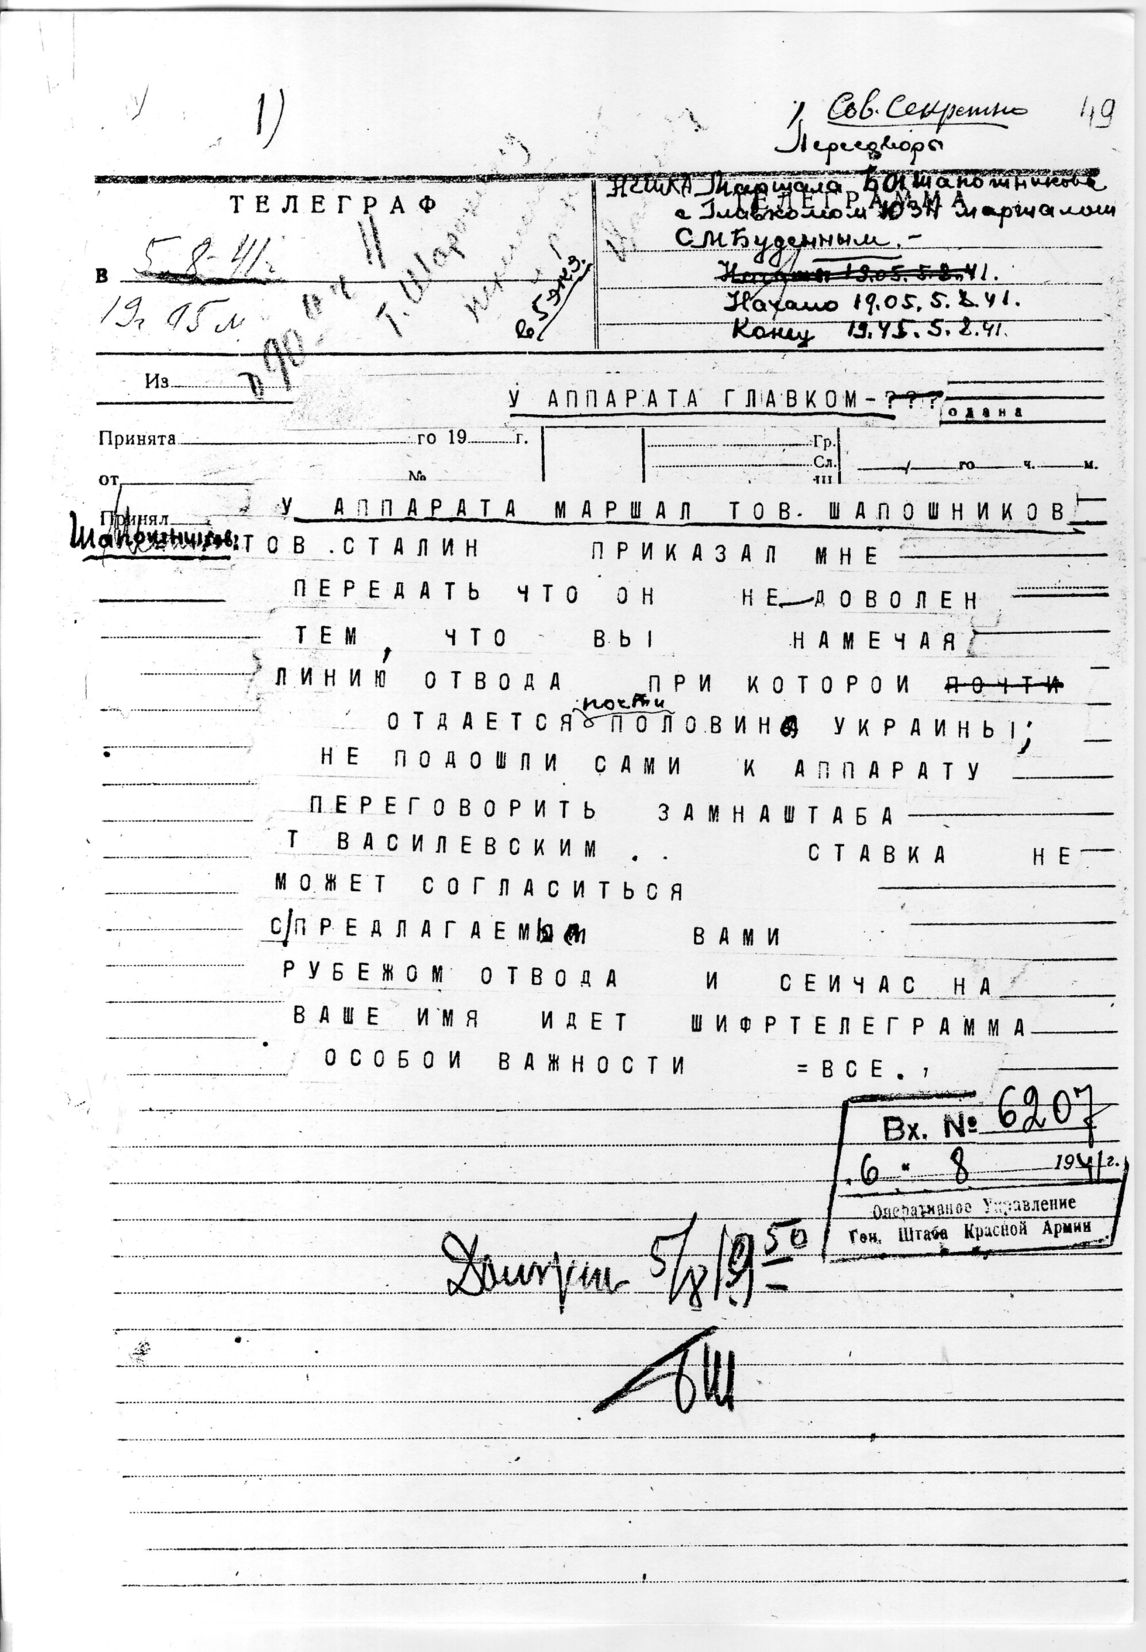 1)
Сов. Секретно 49
Переговоры
НГШКА Маршала Б.М. Шапошникова
с Главкомом ЮЗН маршалом
С М Буденным. –
ТЕЛЕГРАФ
ТЕЛЕГРАММА
в 5.8-41г
19ч 45м
Т. Шарохину
в 5 экз.
Начало 19.05. 5.8.41.
Начало 19.05. 5.8.41.
Конец 19.45. 5.8.41.
Из
У АППАРАТА ГЛАВКОМ-???
одана
Принята го 19 г.
Гр.
Сл.
го ч. м.
от №
Принял
У АППАРАТА МАРШАЛ ТОВ. ШАПОШНИКОВ
Шапошников: ТОВ.СТАЛИН ПРИКАЗАЛ МНЕ
ПЕРЕДАТЬ ЧТО ОН НЕ ДОВОЛЕН
ТЕМ, ЧТО ВЫ НАМЕЧАЯ
ЛИНИЮ ОТВОДА ПРИ КОТОРОИ ПОЧТИ
ОТДАЕТСЯ почти ПОЛОВИНА УКРАИНЫ;
НЕ ПОДОШЛИ САМИ К АППАРАТУ
ПЕРЕГОВОРИТЬ ЗАМНАШТАБА
Т ВАСИЛЕВСКИМ .. СТАВКА НЕ
МОЖЕТ СОГЛАСИТЬСЯ
С/ПРЕДЛАГАЕМЫМ ВАМИ
РУБЕЖОМ ОТВОДА И СЕИЧАС НА
ВАШЕ ИМЯ ИДЕТ ШИФРТЕЛЕГРАММА
ОСОБОИ ВАЖНОСТИ =ВСЕ.,
Вх. № 6207
"6" 8 1941 г.
Оперативное Управление
Ген. Штаба Красной Армии
5/8 19 50
БШ